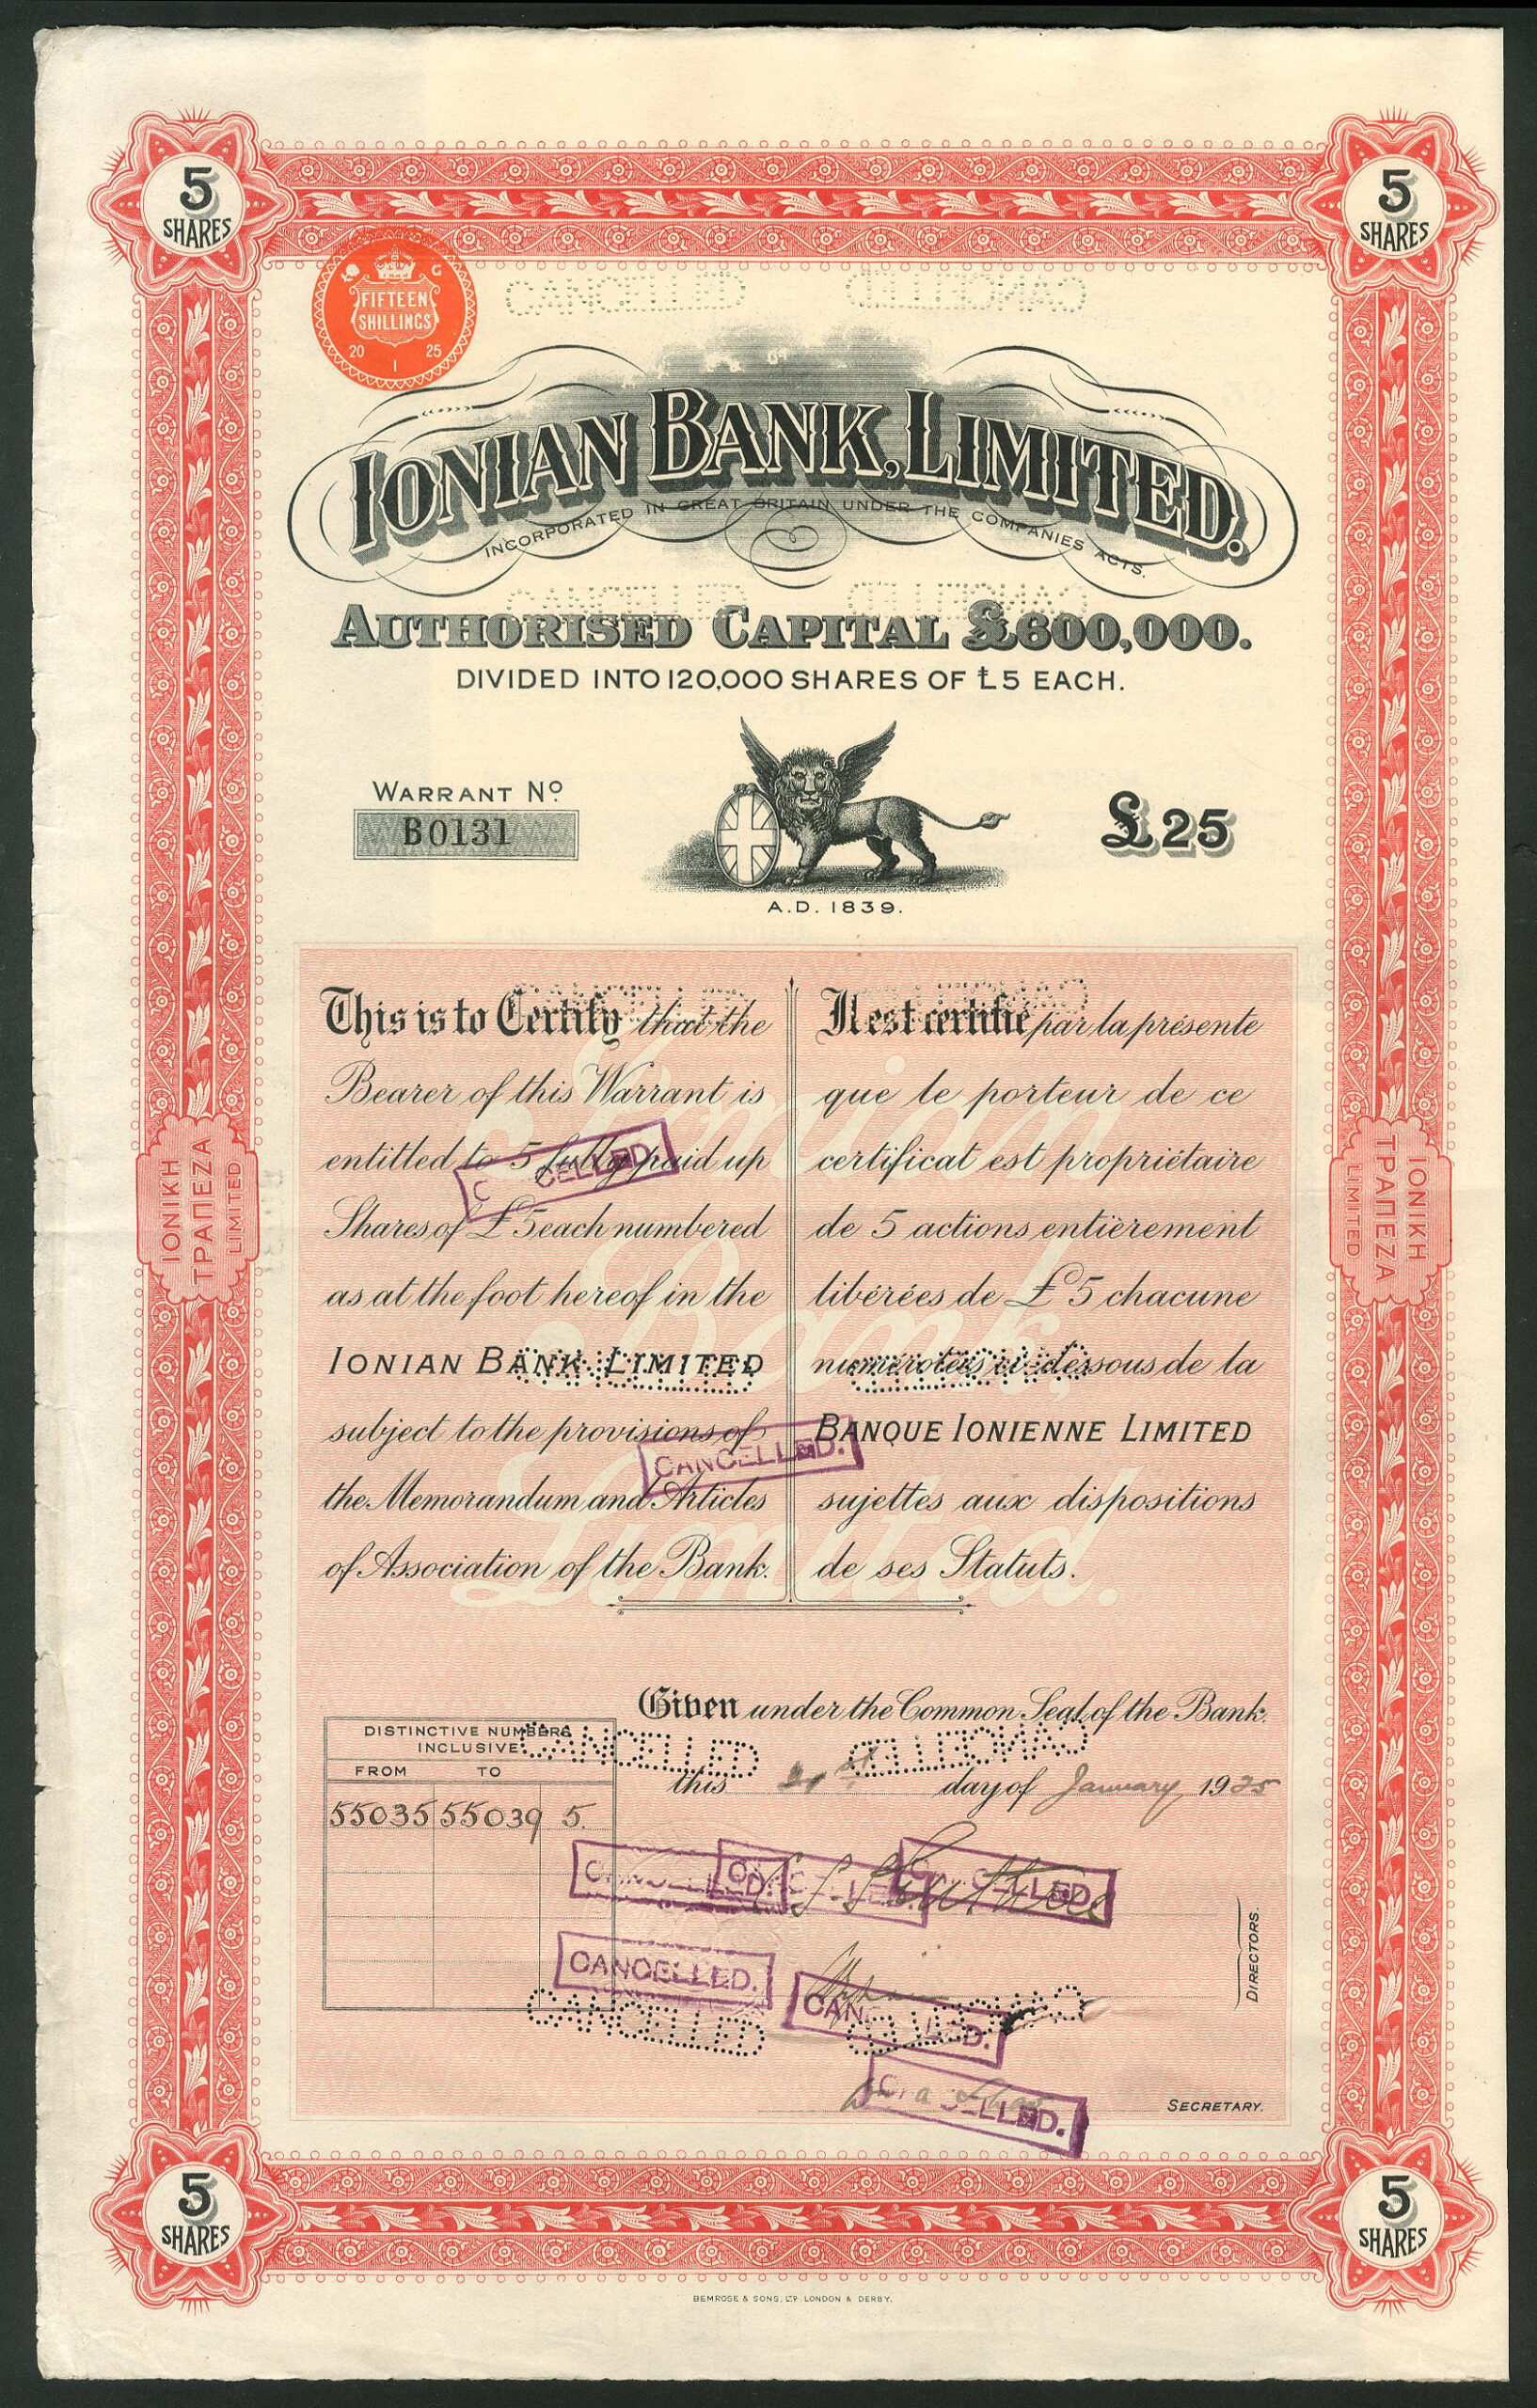 5
SHARES
5
SHARES
G
FIFTEEN
SHILLINGS
20 1 25
CANCELLED CANCELLED
IONIAN BANK, LIMITED.
INCORPORATED IN GREAT BRITAIN UNDER THE COMPANIES ACTS.
CANCELLED CANCELLED
AUTHORISED CAPITAL £600,000.
DIVIDED INTO 120,000 SHARES OF £5 EACH.
WARRANT No.
B0131
£25
A.D. 1839.
CANCELLED CANCELLED
This is to Certify that the
Bearer of this Warrant is
entitled to 5 fully paid up
Shares of £5 each numbered
as at the foot hereof in the
IONIAN BANK LIMITED
subject to the provisions of
the Memorandum and Articles
of Association of the Bank.
Il est certifié par la présente
que le porteur de ce
certificat est propriétaire
de 5 actions entièrement
libérées de £5 chacune
numérotées ci-dessous de la
BANQUE IONIENNE LIMITED
sujettes aux dispositions
de ses Statuts.
Ionian
Bank,
Limited.
CANCELLED CANCELLED
CANCELLED.
CANCELLED.
ΙΟΝΙΚΗ
ΤΡΑΠΕΖΑ
LIMITED
ΙΟΝΙΚΗ
ΤΡΑΠΕΖΑ
LIMITED
Given under the Common Seal of the Bank,
CANCELLED CANCELLED
this 21st day of January 1925
DISTINCTIVE NUMBERS
INCLUSIVE
FROM TO
55035 55039 5.
CANCELLED.
CANCELLED.
CANCELLED.
CANCELLED.
CANCELLED.
CANCELLED CANCELLED
DIRECTORS.
CANCELLED.
SECRETARY.
5
SHARES
5
SHARES
BEMROSE & SONS, LTD. LONDON & DERBY.